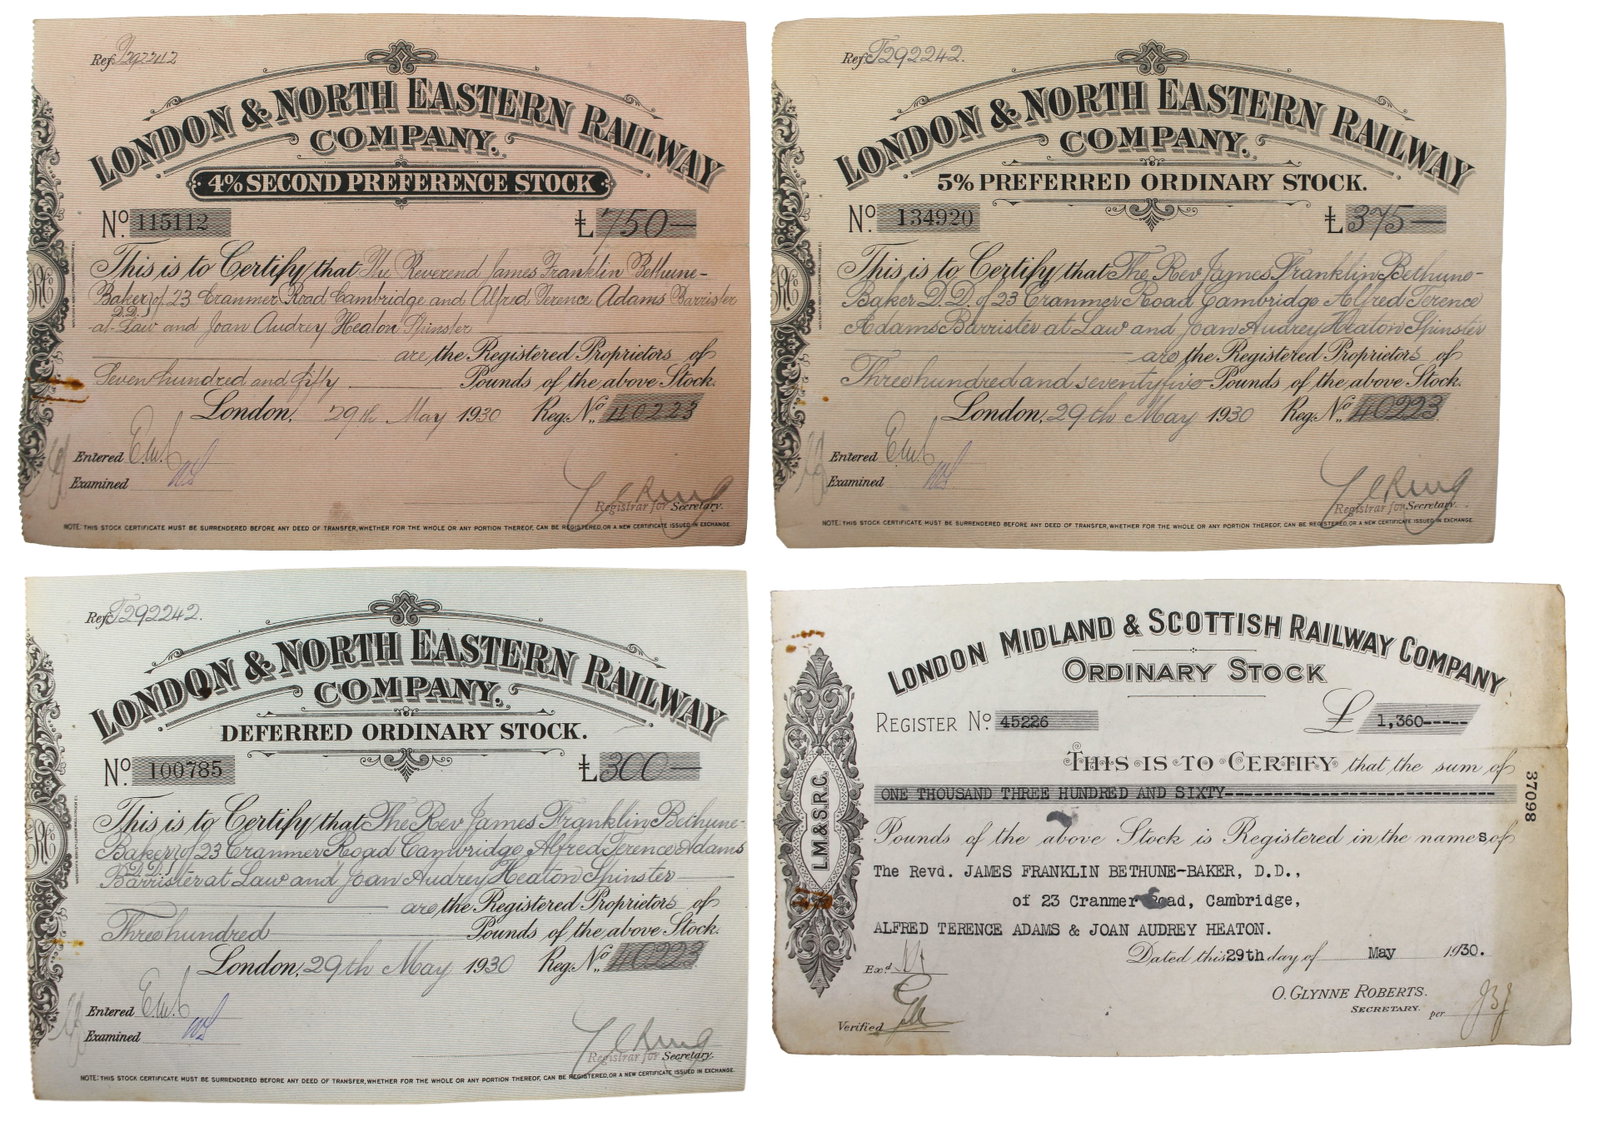 Ref T292242
LONDON & NORTH EASTERN RAILWAY
COMPANY.
4% SECOND PREFERENCE STOCK
No. 115112 £ 750—
This is to Certify that The Reverend James Franklin Bethune-
Baker of 23 Cranmer Road Cambridge and Alfred Terence Adams Barrister
D.D.
at-Law and Joan Audrey Heaton Spinster
are the Registered Proprietors of
Seven hundred and fifty Pounds of the above Stock.
London, 29th May 1930 Reg. No. 40223
Entered
Examined
Registrar for Secretary.
NOTE: THIS STOCK CERTIFICATE MUST BE SURRENDERED BEFORE ANY DEED OF TRANSFER, WHETHER FOR THE WHOLE OR ANY PORTION THEREOF, CAN BE REGISTERED, OR A NEW CERTIFICATE ISSUED IN EXCHANGE.
Ref T292242.
LONDON & NORTH EASTERN RAILWAY
COMPANY.
5% PREFERRED ORDINARY STOCK.
No. 134920 £ 375—
This is to Certify that The Rev James Franklin Bethune-
Baker D.D. of 23 Cranmer Road Cambridge Alfred Terence
Adams Barrister at Law and Joan Audrey Heaton Spinster
are the Registered Proprietors of
Three hundred and seventy five Pounds of the above Stock.
London, 29th May 1930 Reg. No. 40223
Entered
Examined
Registrar for Secretary.
NOTE: THIS STOCK CERTIFICATE MUST BE SURRENDERED BEFORE ANY DEED OF TRANSFER, WHETHER FOR THE WHOLE OR ANY PORTION THEREOF, CAN BE REGISTERED, OR A NEW CERTIFICATE ISSUED IN EXCHANGE.
Ref T292242.
LONDON & NORTH EASTERN RAILWAY
COMPANY.
DEFERRED ORDINARY STOCK.
No. 100785 £ 300—
This is to Certify that The Rev James Franklin Bethune-
Baker of 23 Cranmer Road Cambridge Alfred Terence Adams
D.D.
Barrister at Law and Joan Audrey Heaton Spinster
are the Registered Proprietors of
Three hundred Pounds of the above Stock.
London, 29th May 1930 Reg. No. 40223
Entered
Examined
Registrar for Secretary.
NOTE: THIS STOCK CERTIFICATE MUST BE SURRENDERED BEFORE ANY DEED OF TRANSFER, WHETHER FOR THE WHOLE OR ANY PORTION THEREOF, CAN BE REGISTERED, OR A NEW CERTIFICATE ISSUED IN EXCHANGE.
LONDON MIDLAND & SCOTTISH RAILWAY COMPANY
ORDINARY STOCK
REGISTER No. 45226 £ 1,360-----
THIS IS TO CERTIFY that the sum of
ONE THOUSAND THREE HUNDRED AND SIXTY
37098
L.M.&S.R.C.
Pounds of the above Stock is Registered in the names of
The Revd. JAMES FRANKLIN BETHUNE-BAKER, D.D.,
of 23 Cranmer Road, Cambridge,
ALFRED TERENCE ADAMS & JOAN AUDREY HEATON.
Dated this 29th day of May 1930.
Exd.
O. GLYNNE ROBERTS.
SECRETARY.
per
Verified